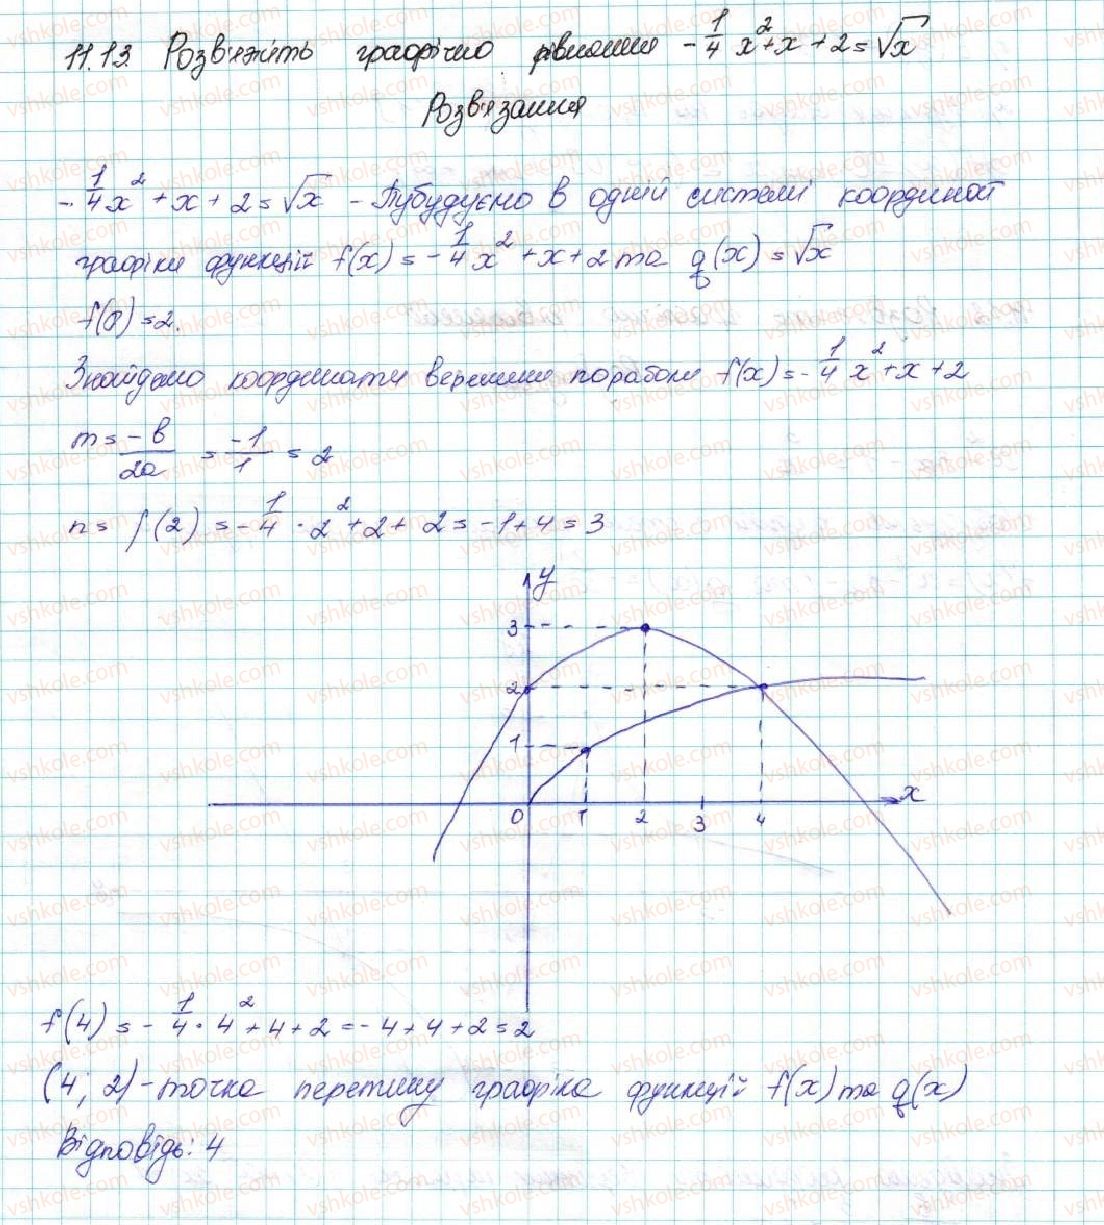 11.13 Розв'яжіть графічно рівняння -1/4 x² + x + 2 = √x
Розв'язання
-1/4 x² + x + 2 = √x - Пубудуємо в одній системі координат
графіки функцій f(x) = -1/4 x² + x + 2 та g(x) = √x
f(0) = 2.
Знайдемо координати вершини параболи f(x) = -1/4 x² + x + 2
m = -b/2a = -1/1 = 2
n = f(2) = -1/4 · 2² + 2 + 2 = -1 + 4 = 3
y
3
2
1
x
0 1 2 3 4
f(4) = -1/4 · 4² + 4 + 2 = -4 + 4 + 2 = 2
(4; 2) - точка перетину графіка функцій f(x) та g(x)
Відповідь: 4
vshkole.com